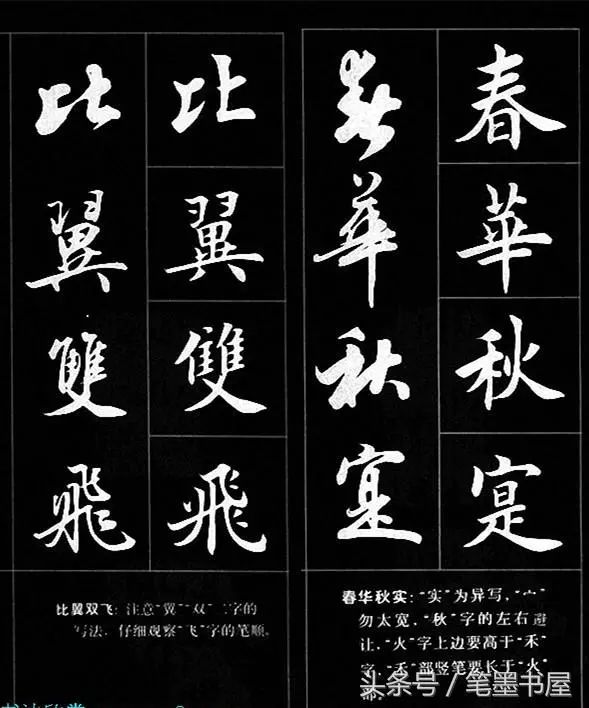 春華秋寔
春華秋寔
春华秋实:“实”为异写,“宀”
勿太宽,“秋”字的左右避
让,“火”字上边要高于“禾”
字,“禾”部竖笔要长于“火”
部。
比翼雙飛
比翼雙飛
比翼双飞:注意“翼”“双”二字的
写法,仔细观察“飞”字的笔顺。
头条号/笔墨书屋